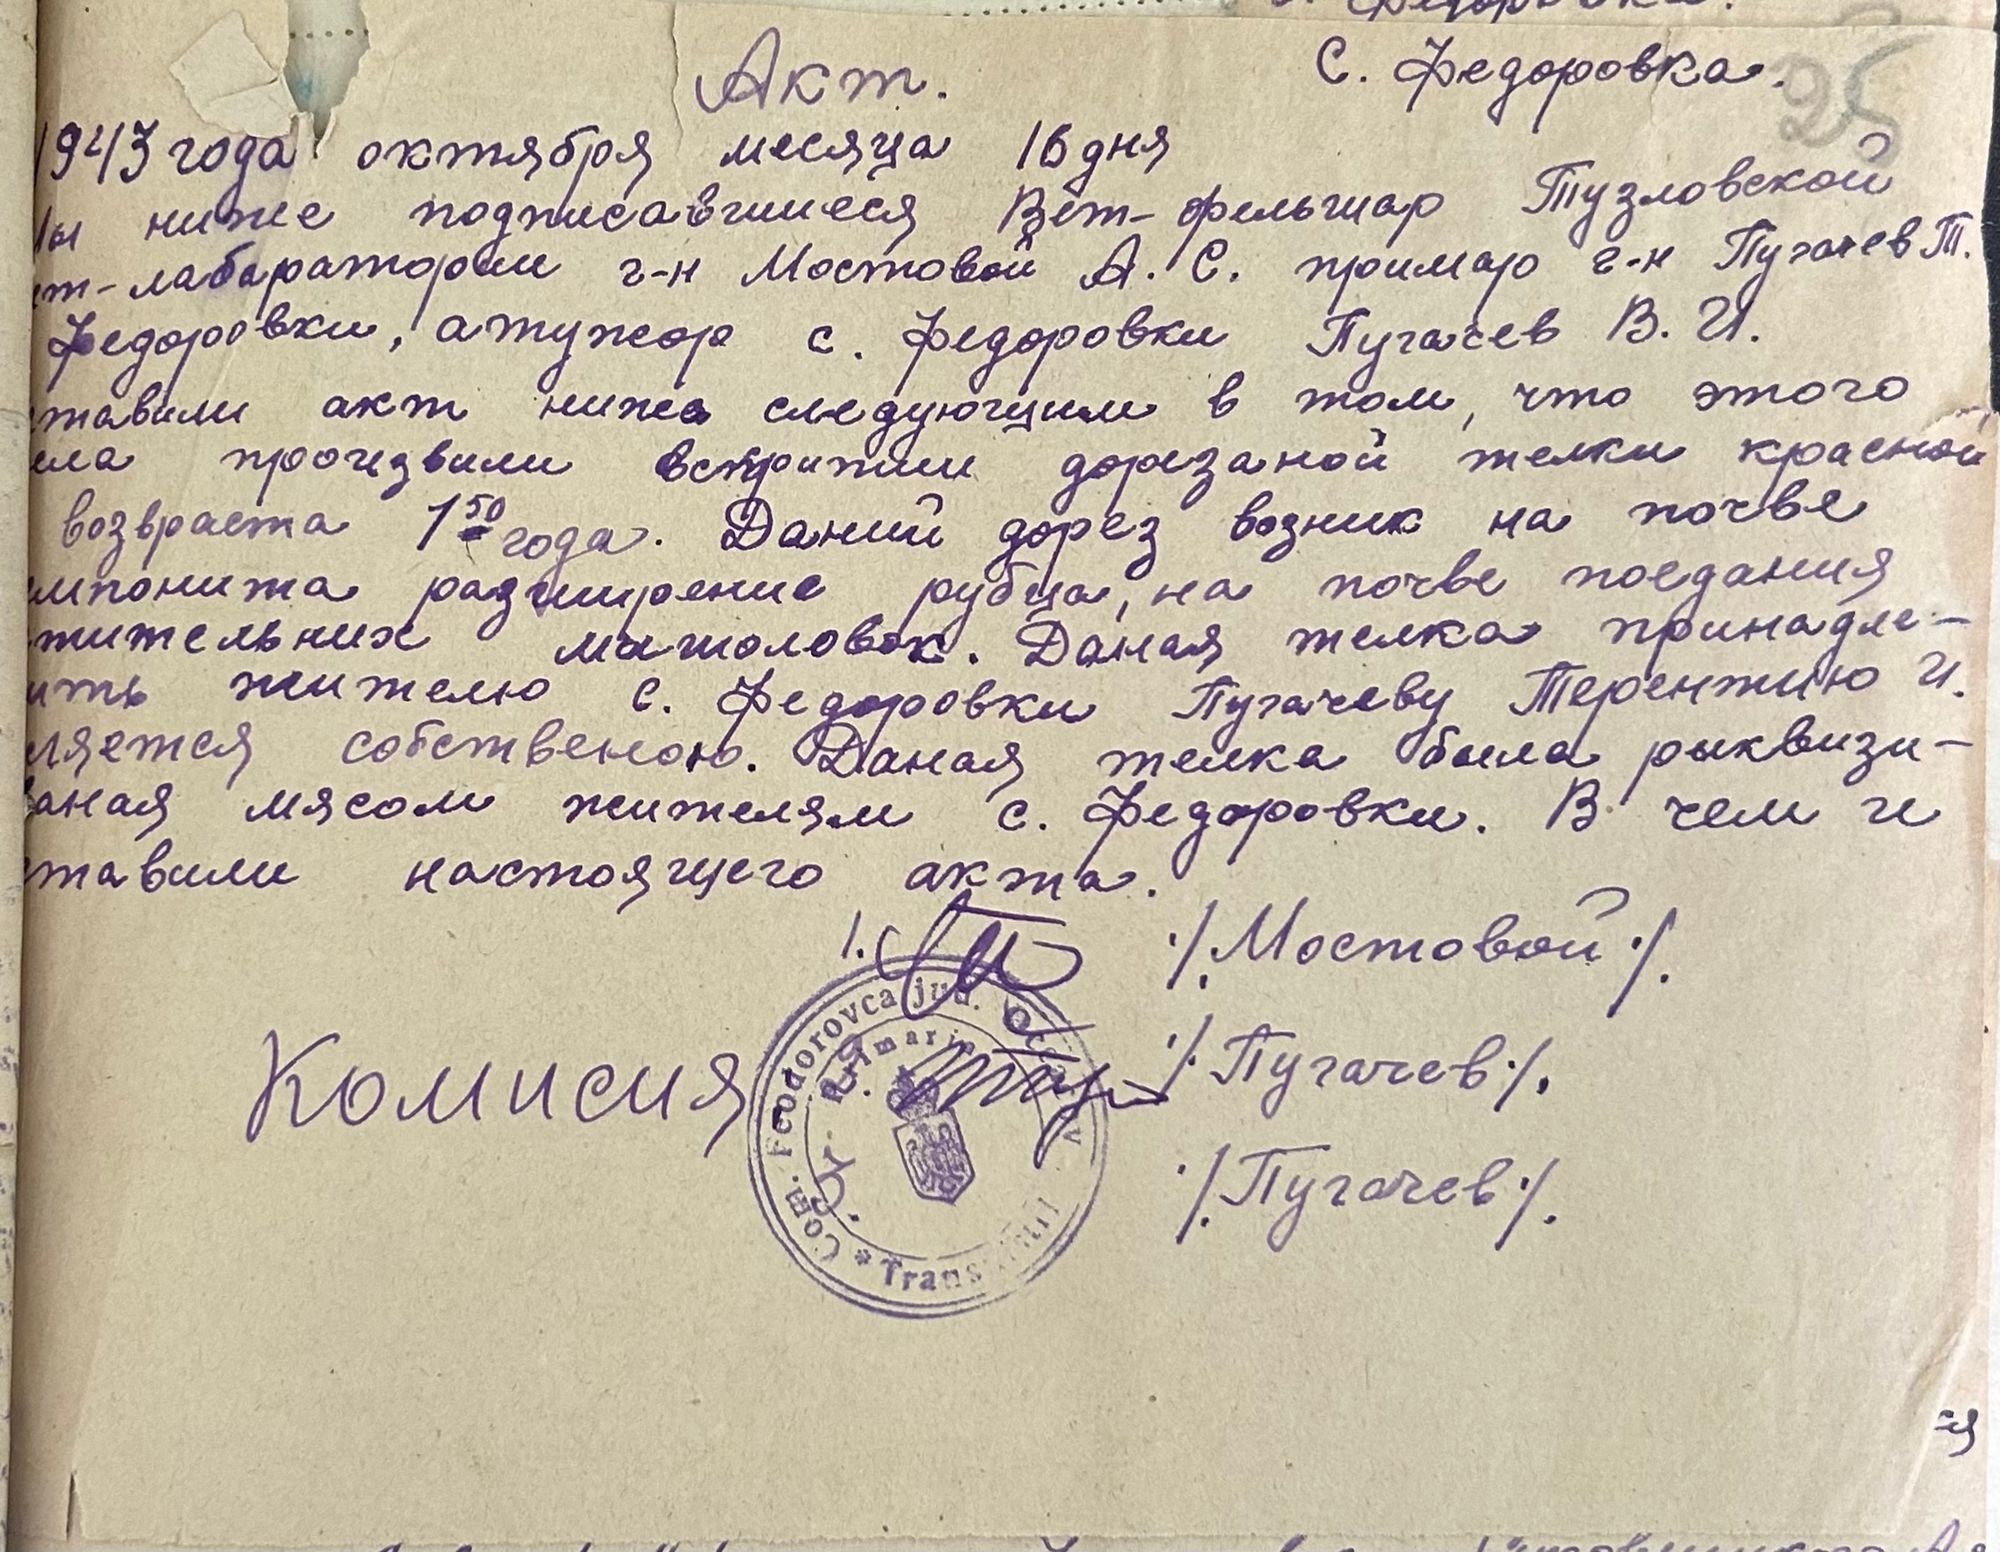 Акт.
С. Федоровка.
25
1943 года октября месяца 16 дня
ниже подписавшиеся Вет-фельшар Тузловской
ет-лабаратории г-н Мостовой А. С. примар г-н Пугачев Т.
Федоровки, ажутор с. Федоровки Пугачев В. И.
ставили акт ниже следующим в том, что этого
ела произвили встритии дорезаной телки красной
возвраста 1 50 года. Даний дорез возник на почве
импонита разширение рубца, на почве поедания
тительних маголовок. Даная телка принадле-
ить жителю с. Федоровки Пугачеву Терентию И.
вляется собственою. Даная телка была рыквизи-
ваная мясом жителям с. Федоровки. В чем и
ставили настоящего акта.
1.
./. Мостовой ./.
Комисия
./. Пугачев ./.
./. Пугачев ./.
Com. Feodorovca jud.
Primaria
* Trans